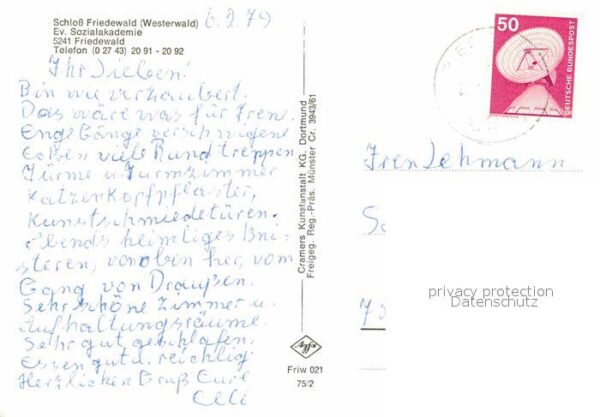 6.2.79
Schloß Friedewald (Westerwald)
Ev. Sozialakademie
5241 Friedewald
Telefon (0 27 43) 20 91 - 20 92
Ihr Lieben!
Bin wie verzaubert.
Das wäre was für Iren.
Enge Gänge verschwiegene
Ecken viele Rundtreppen
Türme u. Turmzimmer
Katzenkopfpflaster,
Kunstschmiedetüren.
Abends heimliges
, von oben her, vom
Gang von Draußen.
Sehr schöne Zimmer u.
Aufhaltungsräume.
Sehr gut geschlafen.
Essen gut u. reichlig.
Herzlichen Gruß Eure
Cramers Kunstanstalt KG, Dortmund
Freigeg. Reg.-Präs. Münster Cr. 3943/61
Agfa
Friw 021
75/2
50
DEUTSCHE BUNDESPOST
Iren Lehmann
privacy protection
Datenschutz